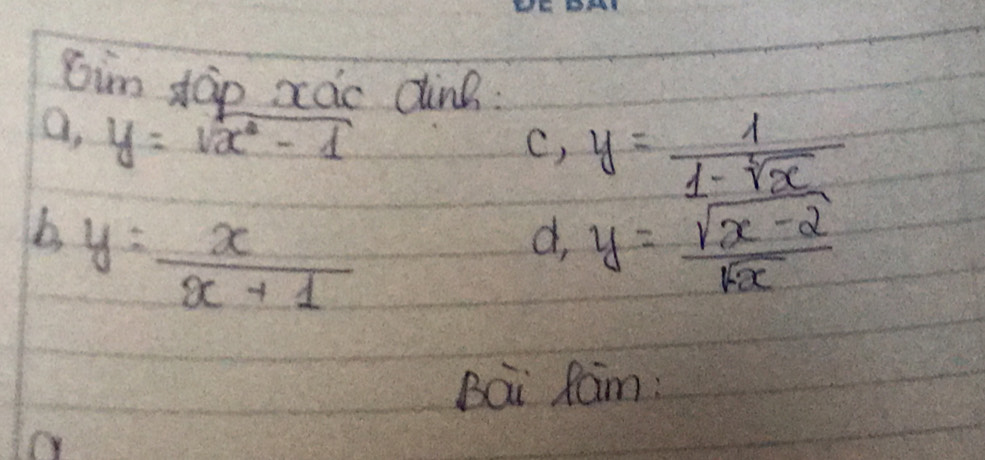 ĐỀ BÀI
Tìm tập xác định:
a, y = √(x² - 1) c, y = 1/(1 - ∛x)
b, y = x/(x + 1) d, y = √(x - 2)/√x
Bài làm:
a